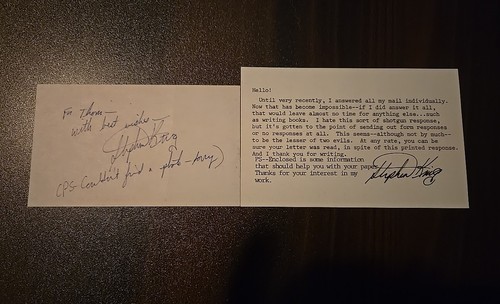 For Thom—
with best wishes
Stephen King
(PS-Couldn't find a photo-Sorry)
Hello!
Until very recently, I answered all my mail individually.
Now that has become impossible--if I did answer it all,
that would leave almost no time for anything else...such
as writing books. I hate this sort of shotgun response,
but it's gotten to the point of sending out form responses
or no responses at all. This seems--although not by much--
to be the lesser of two evils. At any rate, you can be
sure your letter was read, in spite of this printed response.
And I thank you for writing.
PS--Enclosed is some information
that should help you with your paper.
Thanks for your interest in my
work.
Stephen King